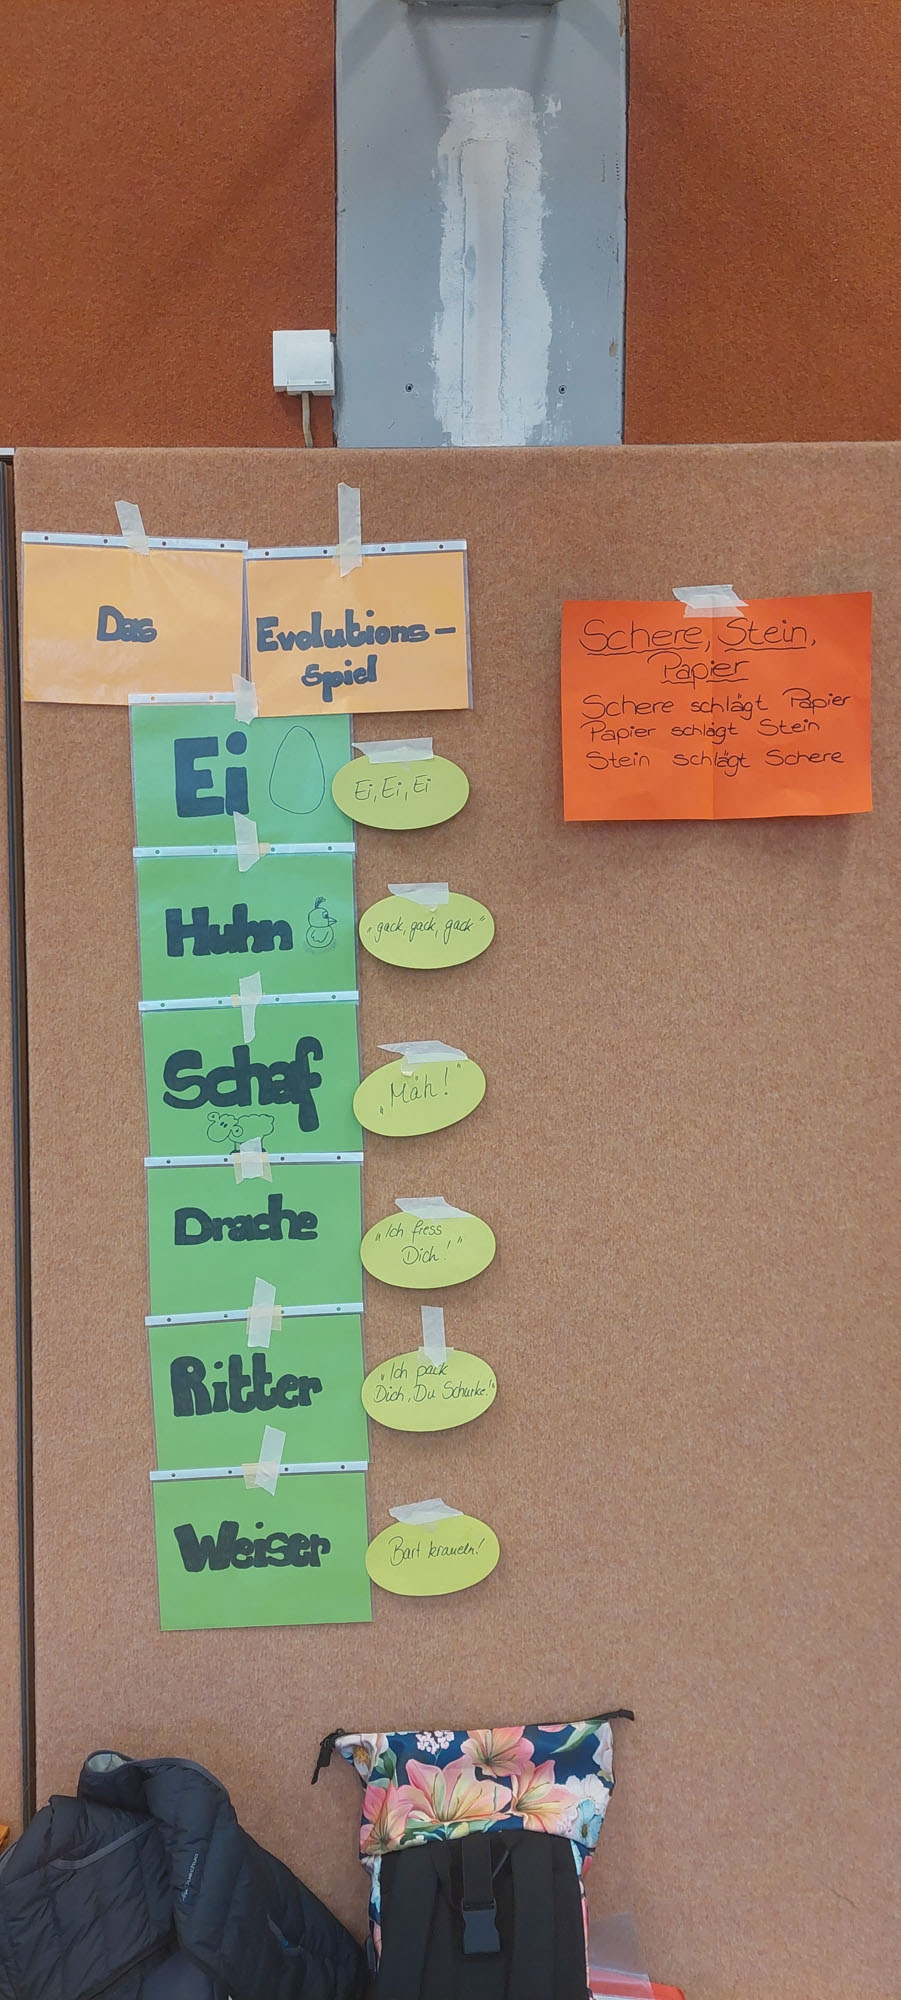 Das
Evolutions-
spiel
Ei
Ei, Ei, Ei
Huhn
„gack, gack, gack“
Schaf
„Mäh!“
Drache
„Ich fress
Dich!“
Ritter
„Ich pack
Dich, Du Schurke!“
Weiser
Bart kraueln!
Schere, Stein,
Papier
Schere schlägt Papier
Papier schlägt Stein
Stein schlägt Schere